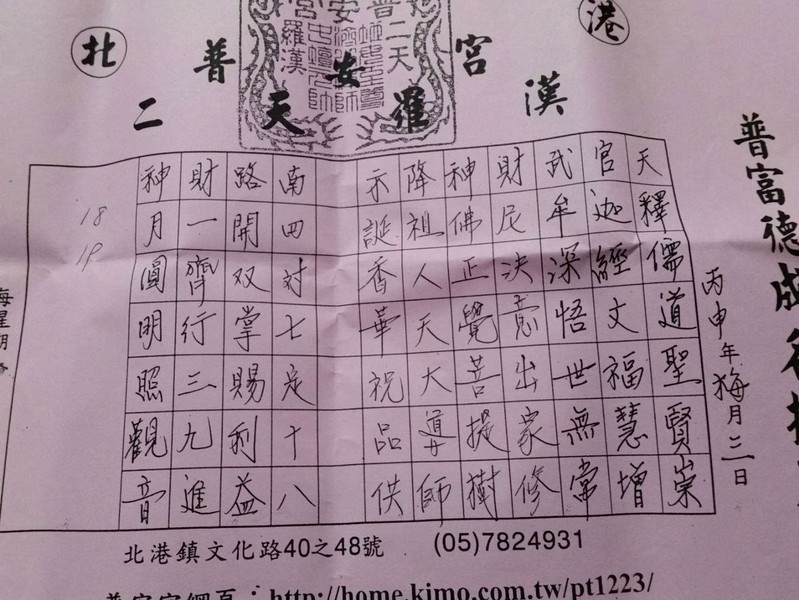 北 港
普 安 宮
二 天 羅 漢
普富德成
丙申年梅月三日
天釋儒道聖賢崇
官迦經文福慧增
武牟深悟世無常
財尼決意出家修
神佛正覺菩提樹
降祖人天大導師
示誕香華祝品供
南四対七定十八
路開双掌賜利益
財一齊行三九進
神月圓明照觀音
18
19
每星期
北港鎮文化路40之48號 (05)7824931
普安宮網頁：http://home.kimo.com.tw/pt1223/